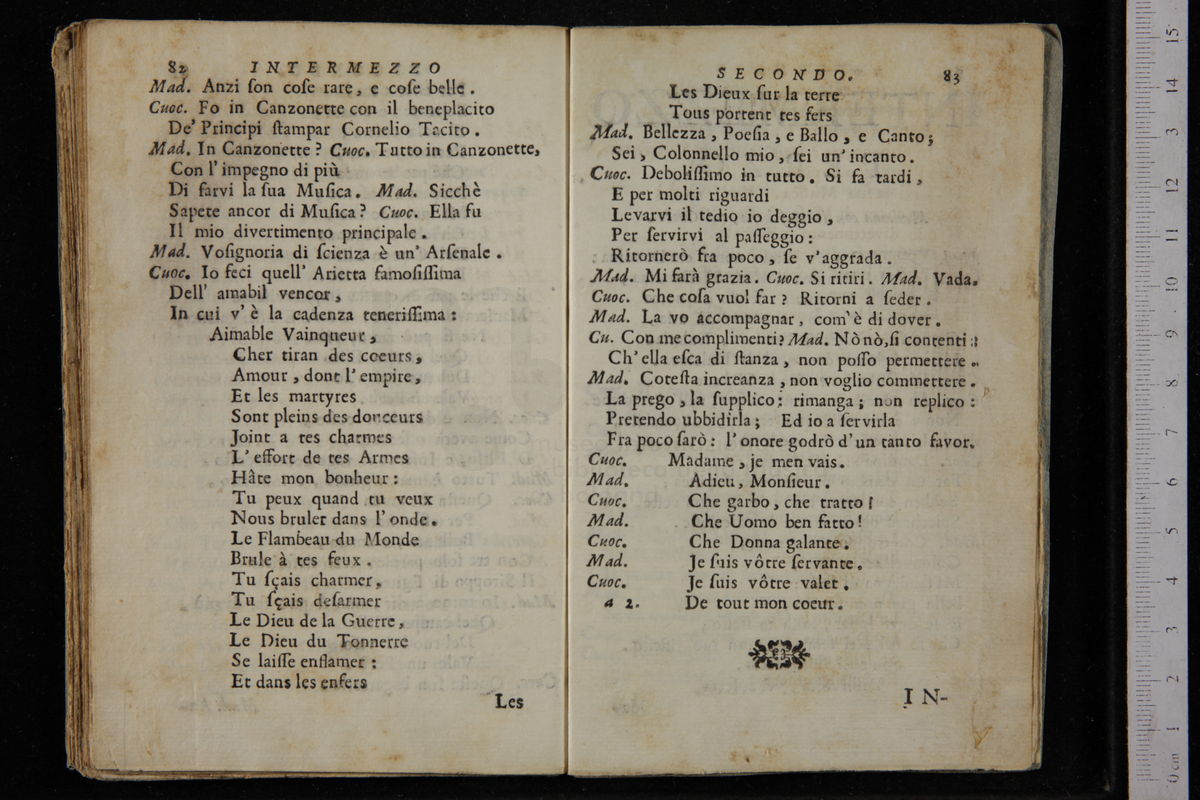 82 INTERMEZZO
Mad. Anzi ſon coſe rare, e coſe belle.
Cuoc. Fo in Canzonette con il beneplacito
De' Principi ſtampar Cornelio Tacito.
Mad. In Canzonette? Cuoc. Tutto in Canzonette,
Con l' impegno di più
Di farvi la ſua Muſica. Mad. Sicchè
Sapete ancor di Muſica? Cuoc. Ella fu
Il mio divertimento principale.
Mad. Voſignoria di ſcienza è un' Arſenale.
Cuoc. Io feci quell' Arietta famoſiſſima
Dell' amabil vencor,
In cui v' è la cadenza teneriſſima:
Aimable Vainqueur,
Cher tiran des coeurs,
Amour, dont l' empire,
Et les martyres
Sont pleins des douceurs
Joint a tes charmes
L' effort de tes Armes
Hâte mon bonheur:
Tu peux quand tu veux
Nous bruler dans l' onde.
Le Flambeau du Monde
Brule à tes feux.
Tu ſçais charmer,
Tu ſçais deſarmer
Le Dieu de la Guerre,
Le Dieu du Tonnerre
Se laiſſe enflamer:
Et dans les enfers
Les
SECONDO. 83
Les Dieux ſur la terre
Tous portent tes fers
Mad. Bellezza, Poeſia, e Ballo, e Canto;
Sei, Colonnello mio, ſei un' incanto.
Cuoc. Deboliſſimo in tutto. Si fa tardi,
E per molti riguardi
Levarvi il tedio io deggio,
Per ſervirvi al paſſeggio:
Ritornerò fra poco, ſe v'aggrada.
Mad. Mi farà grazia. Cuoc. Si ritiri. Mad. Vada.
Cuoc. Che coſa vuol far? Ritorni a ſeder.
Mad. La vo accompagnar, com' è di dover.
Cu. Con me complimenti? Mad. Nò nò, ſi contenti:
Ch' ella eſca di ſtanza, non poſſo permettere.
Mad. Coteſta increanza, non voglio commettere.
La prego, la ſupplico: rimanga; non replico:
Pretendo ubbidirla; Ed io a ſervirla
Fra poco ſarò: l' onore godrò d' un tanto favor.
Cuoc. Madame, je men vais.
Mad. Adieu, Monſieur.
Cuoc. Che garbo, che tratto!
Mad. Che Uomo ben fatto!
Cuoc. Che Donna galante.
Mad. Je ſuis vôtre ſervante.
Cuoc. Je ſuis vôtre valet.
a 2. De tout mon coeur.
IN-